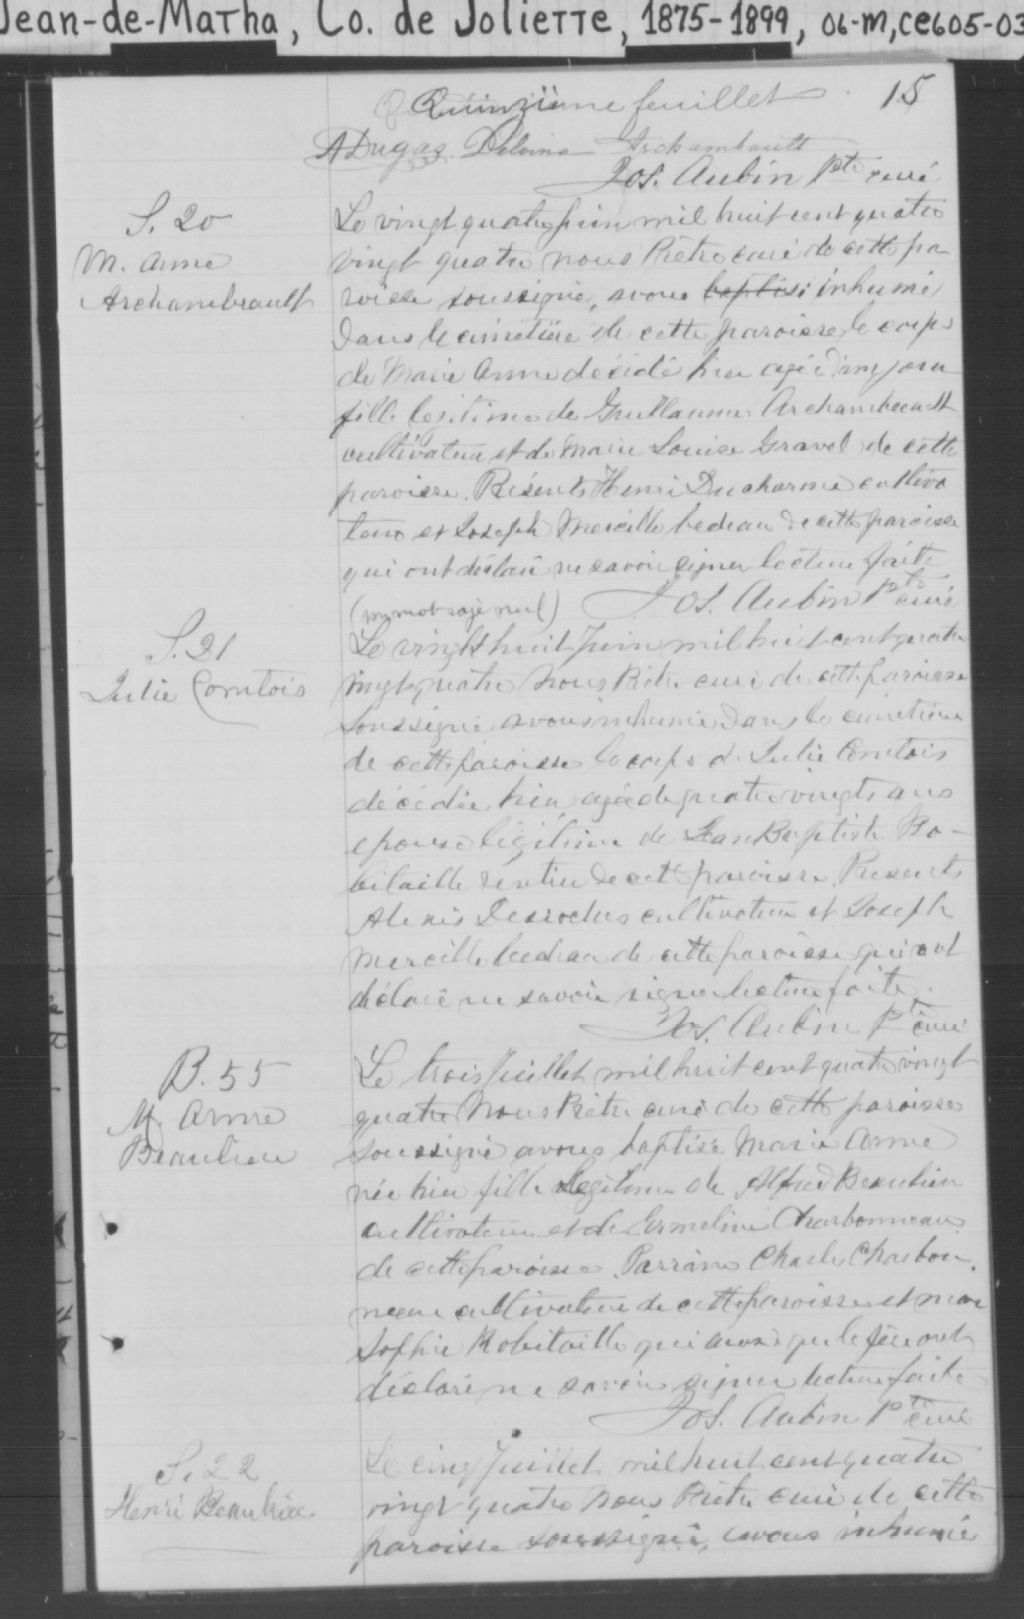 Jean-de-Matha, Co. de Joliette, 1875-1899, 06-M,CE605-03
Quinzième feuillet 15
ADugas Delvina Archambault
Jos. Aubin Ptre curé
S. 20
M. Anne
Archambeault
Le vingt quatre juin mil huit cent quatre
vingt quatre nous Prêtre curé de cette pa
roisse soussigné, avons baptisé inhumé
dans le cimetière de cette paroisse le corps
de Marie Anne décédé hier agée d'un jour
fille legitime de Guillaume Archambeault
cultivateur et de Marie Louise Gravel de cette
paroisse. Présents Henri Ducharme cultiva
teur et Joseph Mercille bedeau de cette paroisse
qui ont déclaré ne savoir signer lecture faite
(un mot rayé nul) Jos. Aubin Ptre curé
S. 21
Julie Comtois
Le vingt huit Juin mil huit cent quatre
vingt quatre Nous Prêtre curé de cette paroisse
soussigné avons inhumé dans le cimetière
de cette paroisse le corps de Julie Comtois
décédée hier, agée de quatre vingts ans
epouse légitime de Jean Baptiste Ro-
bitaille rentier de cette paroisse. Presents
Alexis Desroches cultivateur et Joseph
Mercille bedeau de cette paroisse qui ont
déclaré ne savoir signer lecture faite.
Jos. Aubin Ptre curé
B. 55
M. Anne
Beaulieu
Le trois Juillet mil huit cent quatre vingt
quatre Nous Prêtre curé de cette paroisse
soussigné avons baptisé Marie Anne
née hier fille légitime de Alfred Beaulieu
cultivateur et de Ermeline Charbonneau
de cette paroisse. Parrain Charles Charbon.
neau cultivateur de cette paroisse et
Sophie Robitaille qui ainsi que le père ont
déclaré ne savoir signer lecture faite
Jos. Aubin Ptre curé
S. 22
Henri Beaulieu
Le cinq Juillet mil huit cent quatre
vingt quatre Nous Prêtre curé de cette
paroisse soussigné, avons inhumé